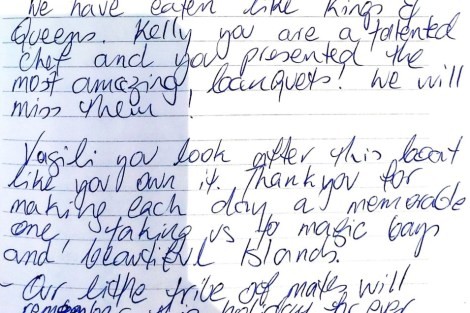 We have eaten like Kings &
Queens. Kelly you are a talented
chef and you presented the
most amazing banquets! We will
miss them!
Vasili you look after this boat
like you own it. Thankyou for
making each day a memorable
one, taking us to magic bays
and beautiful Islands.
- Our little tribe of mates will
remember this holiday for ever